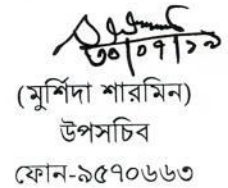 ৩০|০৭|১৯
(মুর্শিদা শারমিন)
উপসচিব
ফোন-৯৫৭০৬৬৩